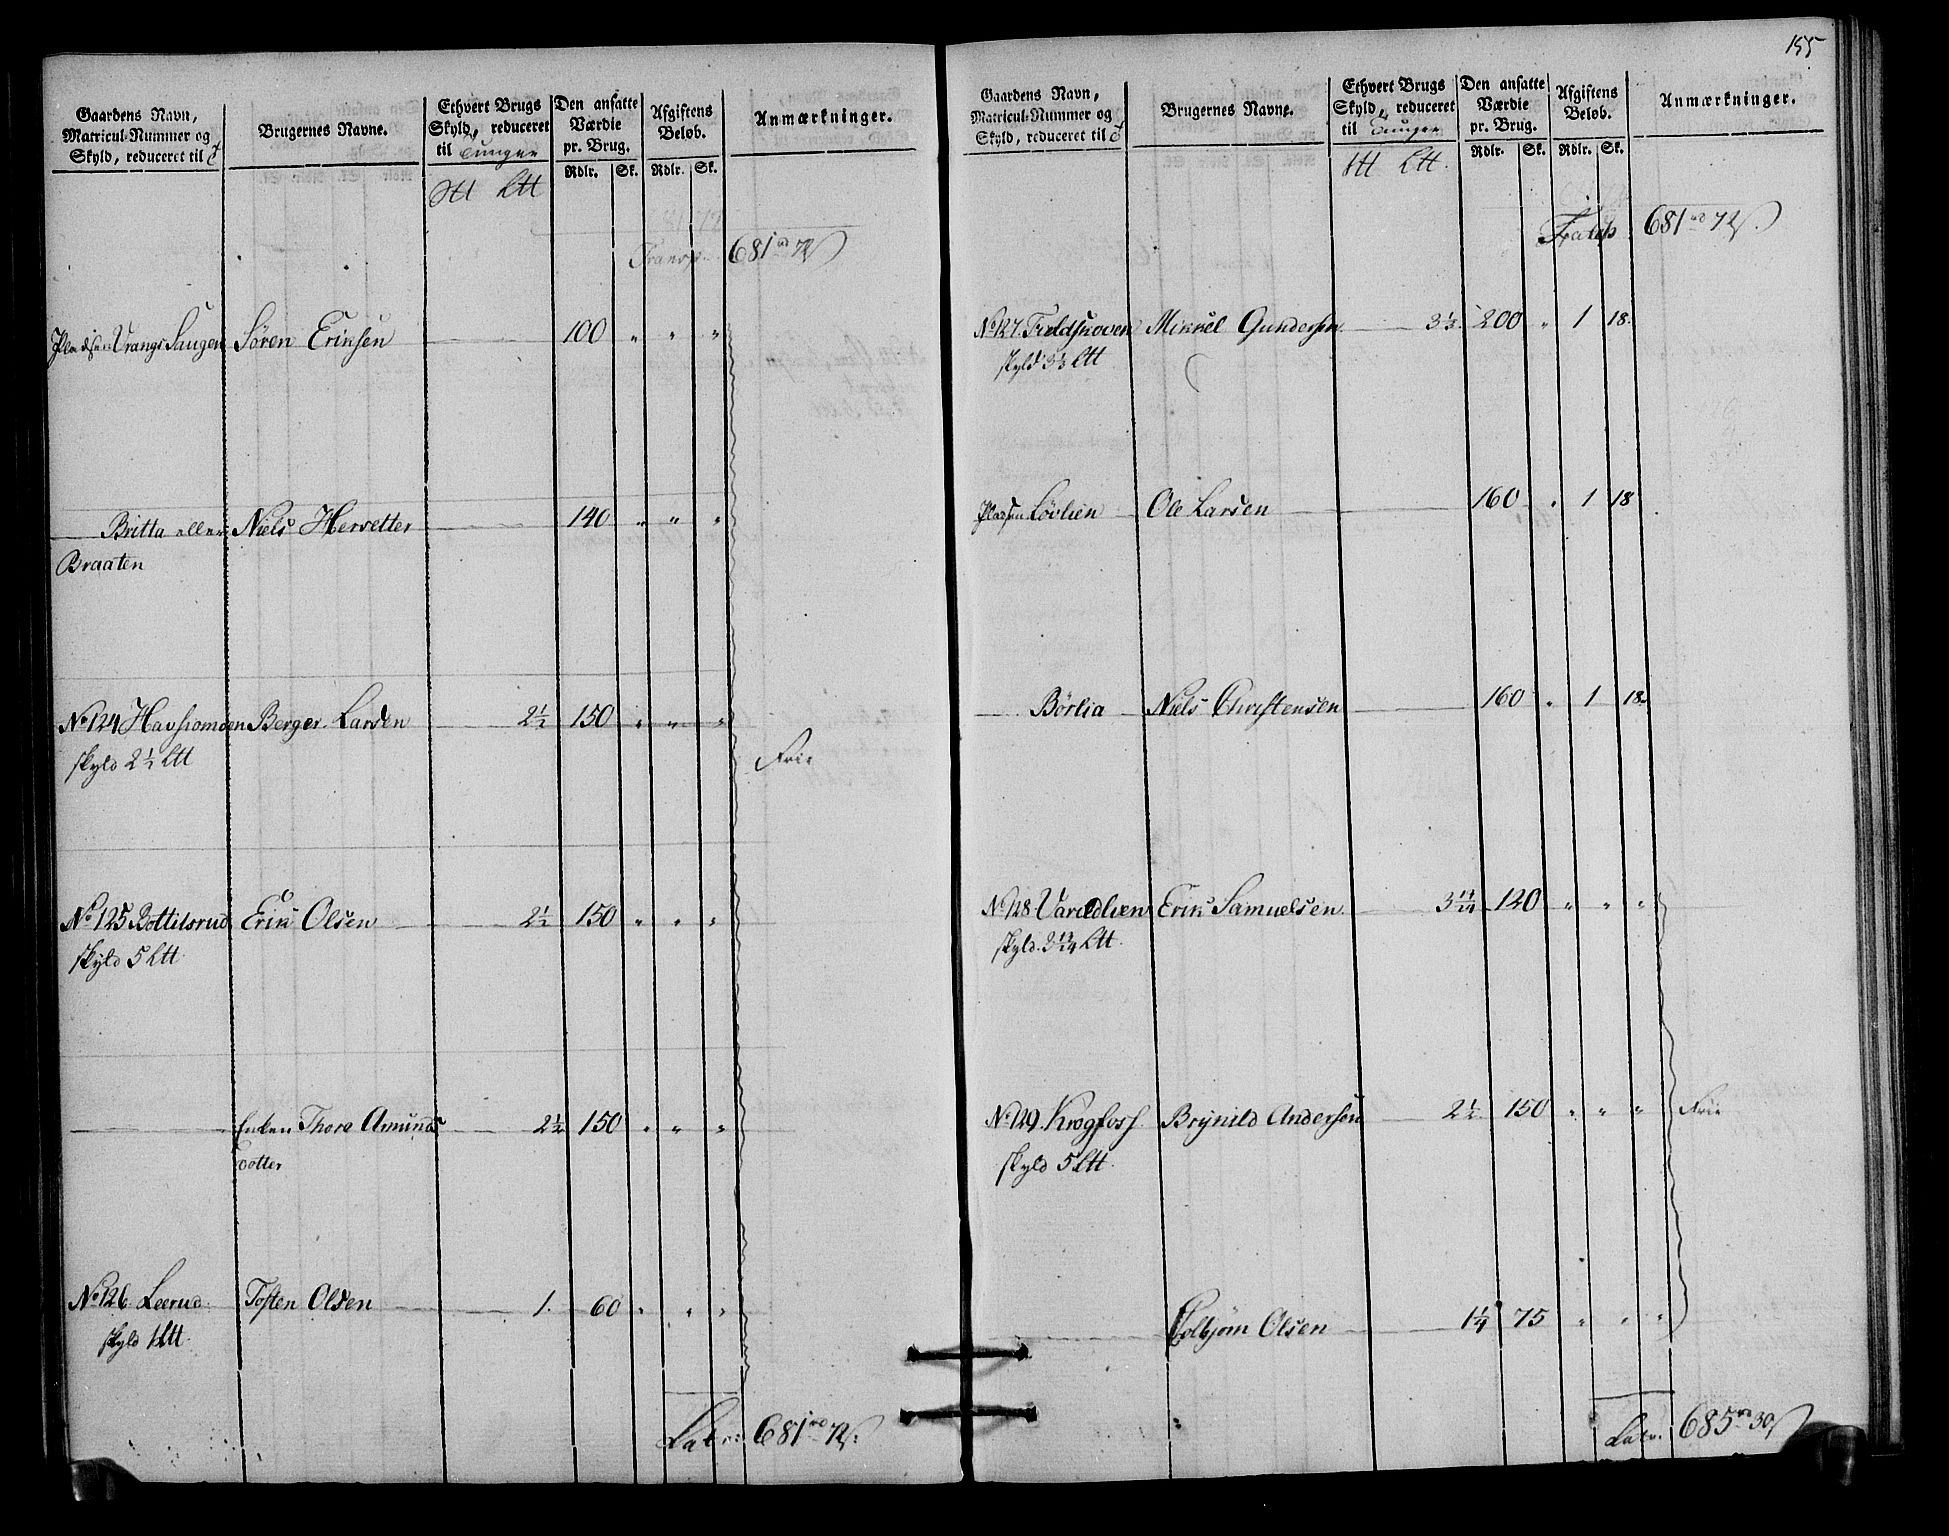 Gaardens Navn,
Matricul-Nummer og
Skyld, reduceret til
Brugernes Navne.
Ethvert Brugs
Skyld, reduceret
til Tunger
Den ansatte
Værdie
pr. Brug.
Afgiftens
Beløb.
Anmærkninger.
Rdlr. Sk. Rdlr. Sk.
Ltt
Transp. 681 rd 72 s
Pladsen Vrangs Haugen Søren Erichsen 100 " " "
Britta eller Niels Hersetter 140 " " "
Braaten
No 124 Berger Larsen 2½ 150 " " "
skyld 2½ Ltt
Frie
No 125 Bottilsrud Erik Olsen 2½ 150 " " "
skyld 5 Ltt
Enken Thore Amunds 2½ 150 " " "
dotter
No 126 Leerud Tosten Olsen 1. 60 " " "
skyld 1 Ltt
Lat. 681 rd 72 s
155
Gaardens Navn,
Matricul-Nummer og
Skyld, reduceret til
Brugernes Navne.
Ethvert Brugs
Skyld, reduceret
til Tunger
Den ansatte
Værdie
pr. Brug.
Afgiftens
Beløb.
Anmærkninger.
Rdlr. Sk. Rdlr. Sk.
Ltt
681 rd 72 s
No 127. Mikkel Gundersen 3⅓ 200 " 1 18.
skyld 3⅓ Ltt
Pladsen Løvlien Ole Larsen 160 " 1 18
Børlia Niels Christensen 160 " 1 18
No 128 Erik Samuelsen 120 " " "
skyld Ltt
No 129. Krogfoss Brynild Andersen 2½ 150 " " " Frie
skyld 5 Ltt.
Colbjørn Olsen 1¼ 75 " " "
Lat. 685 rd 30 s